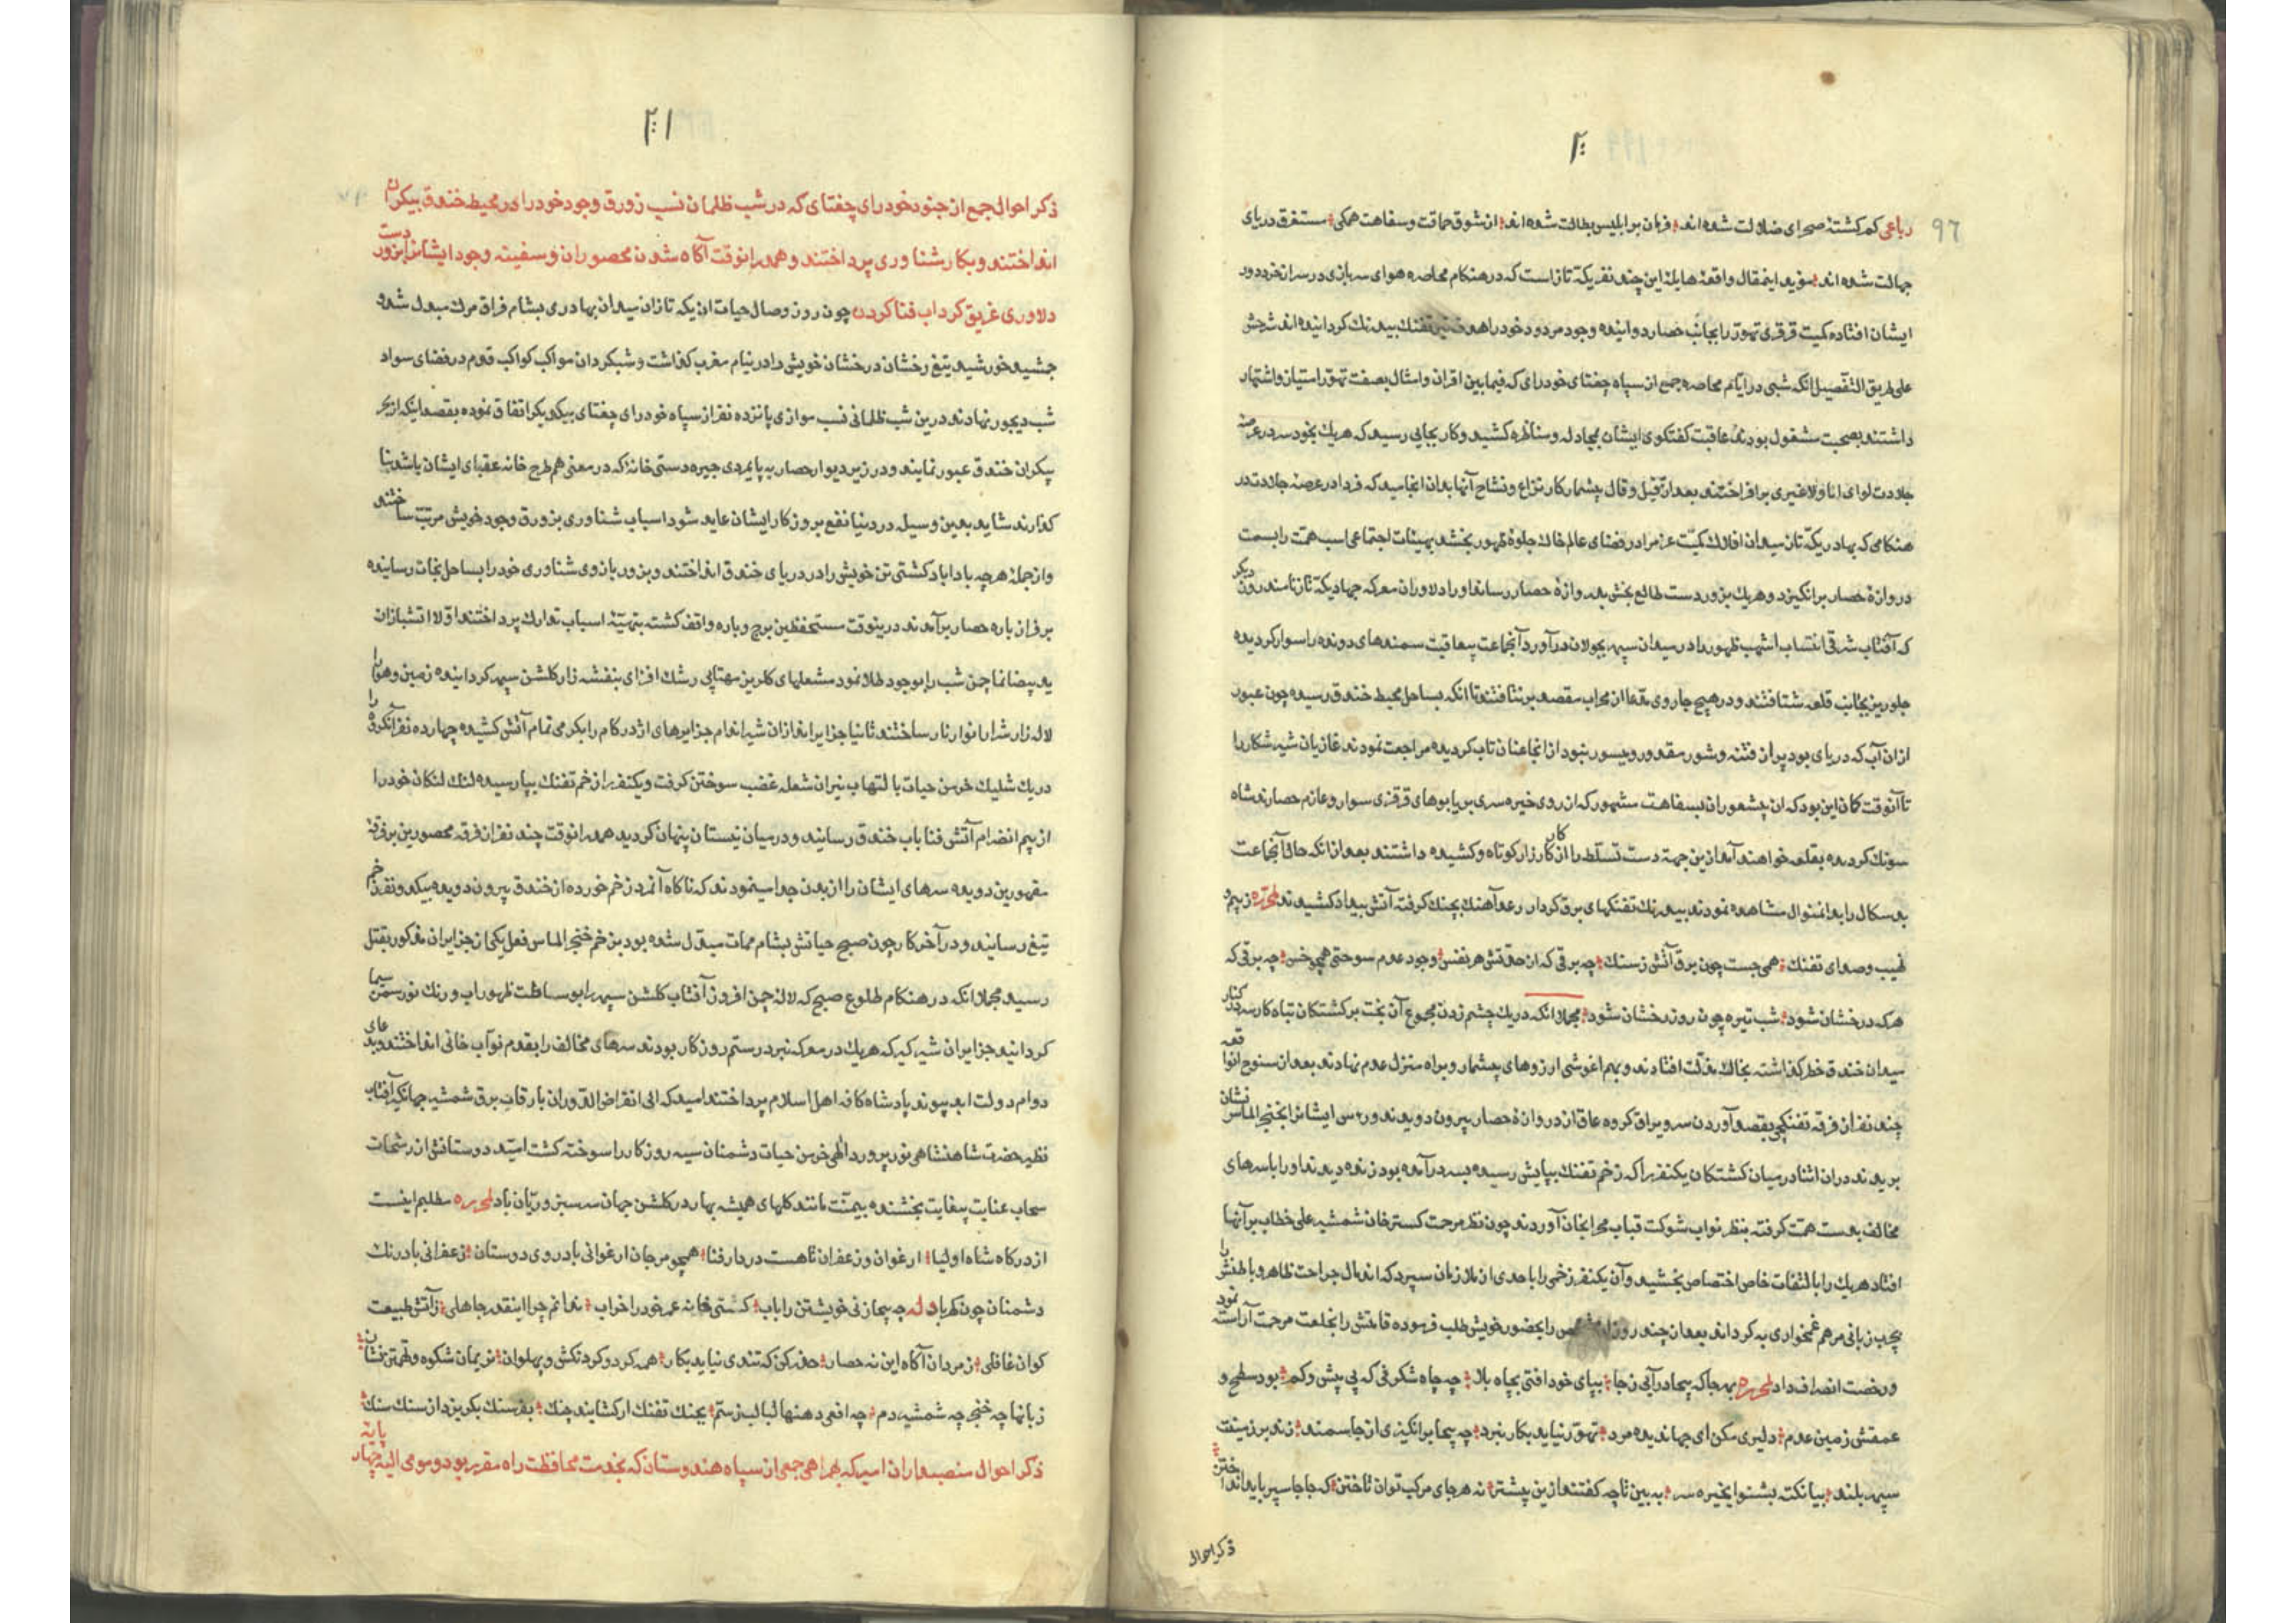 ۲۰۰
97
رباعی کم کشتهٔ صحرای ضلالت شده اند فرمان بر ابلیس بطالت شده اند از شوق حماقت و سفاهت همکی مستغرق دریای
جهالت شده اند مؤید اینمقال واقعهٔ هایلهٔ این چند نفر یکه تاز است که در هنکام محاصره هوای سربازی در سر از خرد دور
ایشان افتاده کمیت قرقری تهور را بجانب حصار دوانیده وجود مردود خود را هدف تیر تفنك بیدرنك کردانیده اند شرحش
علی طریق التفصیل انکه شبی در ایام محاصره جمع از سپاه چغتای خودرای که فیمابین اقران و امثال بصفت تهور امتیاز و اشتهار
داشتند بصحبت مشغول بودند عاقبت کفتکوی ایشان بمجادله و مناظره کشید و کار بجایی رسید که هریك بخودسر در عرصهٔ
جلادت لوای انا ولاغیری برافراختند بعد از قیل و قال بیشمار کار نزاع و آنها بدان انجامید که فردا در عرصهٔ جلادت در
هنکامی که بهادر یکه تاز میدان افلاك کمیت عزم را در فضای عالم خاك جلوهٔ ظهور بخشد بهیئات اجتماعی اسب همت را بسمت
دروازهٔ حصار برانکیزد و هریك بزور دست طالع بخش بدروازهٔ حصار رساند او را دلاوران معرکه جهاد یکه تاز نامند روز دیکر
که آفتاب شرقی انتساب اشهب ظهور را در میدان سپهر بجولان درآورد آنجماعت بیعاقبت سمندهای دونده را سوار کردیده
جلوریز بجانب قلعه شتافتند و در هیچ جا روی از محراب مقصد برنتافتند تا انکه بساحل محیط خندق رسیده چون عبور
ازان آب که دریای بود پر از فتنه و شور مقدور و میسور نبود از انجا عنان تاب کردیده مراجعت نمودند غازیان شیر شکار را
تا آنوقت کمان این بود که ان بیشعوران بسفاهت مشهور که از روی خیره سری بر یابوهای قرقزی سوار و عازم حصارند شاه
سونك کردیده بقلعه خواهند آمد ازین جهة دست تسلط را از کار کارزار کوتاه و کشیده داشتند بعد از انکه حال آنجماعت
بدسکال را بدانمنوال مشاهده نمودند بیدرنك تفنکهای برق کردار رعد آهنك بچنك کرفته آتش بیداد کشیدند لمحرره ز بیم و
نهیب و صدای تفنك همی جست چون برق آتش ز سنك چه برقی که از حدقتش هر نفس وجود عدم سوختی همچو خس چه برقی که
هرکه درخشان شود شب تیره چون روز رخشان شود مجملا انکه در یك چشم زدن مجموع آن بخت برکشتکان تباه کار سر در کنار
میدان خندق خطر کذاشته بخاك مذلت افتادند و بهم اغوشی ارزوهای بیشمار و براه منزل عدم نهادند بعد از سنوح انواقعه
چند نفر از فرقه تفنکچی بقصد آوردن سر و یراق کروه عاق از دروازهٔ حصار بیرون دویدند و رءس ایشانرا بخنجر الماس نشان
بریدند دران اثنا در میان کشتکان یکنفر را که زخم تفنك بپایش رسیده بسر درآمده بود زنده دیدند او را با سرهای
مخالف بدست همت کرفته بنظر نواب شوکت قباب محرابخان آوردند چون نظر مرحمت کستر خان شمشیر علی خطاب بر آنها
افتاد هریك را بالتفات خاص اختصاص بخشید و آن یکنفر زخمی را باحدی از ملازمان سپرد که اندمال جراحت ظاهر و باطنش را
بچرب زبانی مرهم غمخواری به کرداند بعد از چند روز را بحضور خویش طلب فرموده قامتش را بخلعت مرحمت آراسته نمود
و رخصت انصراف داد لمحرره بهرجا که بیجا درآیی ز جا بپای خود افتی بچاه بلا چه چاه شکرفی که بی بیش و کم بود سطح و
عمقش زمین عدم دلیری مکن ای جهاندیده مرد تهور نیاید بکار نبرد چه بیجا برانکیزی از جا سمند زند بر زمینت
سپهر بلند بیا نکته بشنو ایخیره سر به بین تا چه کفتند ازین پیشتر نه هرجای مرکب توان تاختن که جاجا سپر باید انداختن
ذکر احوال
۲۰۱
ذکر احوال جمع از جنود خودرای چغتای که در شب ظلمانی نسب زورق وجود خود را در محیط خندق بیکران
انداختند و بکار شناوری پرداختند و همدرانوقت آکاه شدن محصوران و سفینه وجود ایشانرا بزور دست
دلاوری غریق کرداب فنا کردن چون روز وصال حیات ان یکه تازان میدان بهادری بشام فراق مرك مبدل شد و
جمشید خورشید تیغ رخشان درخشان خویش را در نیام مغرب کذاشت و شبکردان مواکب کواکب قدم در فضای سواد
شب دیجور نهادند درین شب ظلمانی نسب موازی پانزده نفر از سپاه خودرای چغتای بیکدیکر اتفاق نموده بقصد اینکه از بحر
بیکران خندق عبور نمایند و در زیر دیوار حصار به پایمردی چیره دستی خانهٔ که در معنی هم طرح خانه عقبای ایشان باشد بنا
کذارند شاید بدین وسیله در دنیا نفع بروزکار ایشان عاید شود اسباب شناوری بزورق وجود خویش مرتب ساختند
و ازجمله هرچه بادا باد کشتی تن خویش را در دریای خندق انداختند و بزور بازوی شناوری خود را بساحل نجات رسانیده
بر فراز باره حصار برآمدند درینوقت مستحفظین برج و باره واقف کشته بتهیئهٔ اسباب تدارك پرداختند اولا اتشبازان
ید بیضا نما چمن شب را بوجود نمود مشعلهای کلریز مهتابی رشك افزای بنفشه زار کلشن سپهر کردانیده زمین و هوا را
لاله زار شرار انوار نار ساختند ثانیا جزایراندازان شیر اندام جزایرهای اژدر کام را بکرمی تمام آتش کشیده چهارده نفر آنکروه را
دریك شلیك خرمن حیات بالتهاب نیران شعله غضب سوختن کرفت و یکنفر را زخم تفنك بپا رسیده لنك لنکان خود را
از بیم انضرام آتش فنا باب خندق رسانید و در میان نیستان پنهان کردید همدرانوقت چند نفر از فرقه محصورین بر فرقهٔ
مقهورین دویده سرهای ایشان را از بدن جدا مینمودند که ناکاه آنمرد زخم خورده از خندق بیرون دویده بیکدو نفر زخم
تیغ رسانید و در آخر کار چون صبح حیاتش بشام ممات مبدل شده بود بزخم خنجر الماس فعل یکی از جزایران مذکور بقتل
رسید مجملا انکه در هنکام طلوع صبح که لالهٔ چمن افروز آفتاب کلشن سپهر را بوساطت ظهور اب و رنك نور سمن سیما
کردانید جزایران شیرکیر که هریك در معرکه نبرد رستم روزکار بودند سرهای مخالف را بقدم نواب خانی انداختند و بدعای
دوام دولت ابد پیوند پادشاه کافه اهل اسلام پرداختند امید که الی انقراض الدوران بارقات برق شمشیر جهانکیر آفتاب
نظیر حضرت شاهنشاهی نور پرورد الهی خرمن حیات دشمنان سیه روزکار را سوخته کشت امید دوستانش از رشحات
سحاب عنایت بیغایت بخشنده بیمنت مانند کلهای همیشه بهار در کلشن جهان سرسبز و ریان باد لمحرره مطلبم اینست
از درکاه شاه اولیا ارغوان و زعفران تا هست در دار فنا همچو مرجان ارغوانی باد روی دوستان زعفرانی باد رنك
دشمنان چون کهربا وله چه بیجا زنی خویشتن را باب کنی خانه عمر خود را خراب ندانم چرا اینقدر جاهلی ز آتش طبیعت
کوان غافلی ز مردان آکاه این نه حصار حذر کن که تندی نیاید بکار همه کرد و کردنکش و پهلوان نریمان شکوه و تهمتن نشان
زبانها چه خنجر چه شمشیر دم چه افعی دهنها لبالب ز سم بچنك تفنك ار کشایند چنك بفرسنك بکریزد از سنك سنك
ذکر احوال منصبداران امیر که بهمراهی جمعی از سپاه هندوستان که بخدمت محافظت راه مقرر بود و مومی الیه چهار پایه